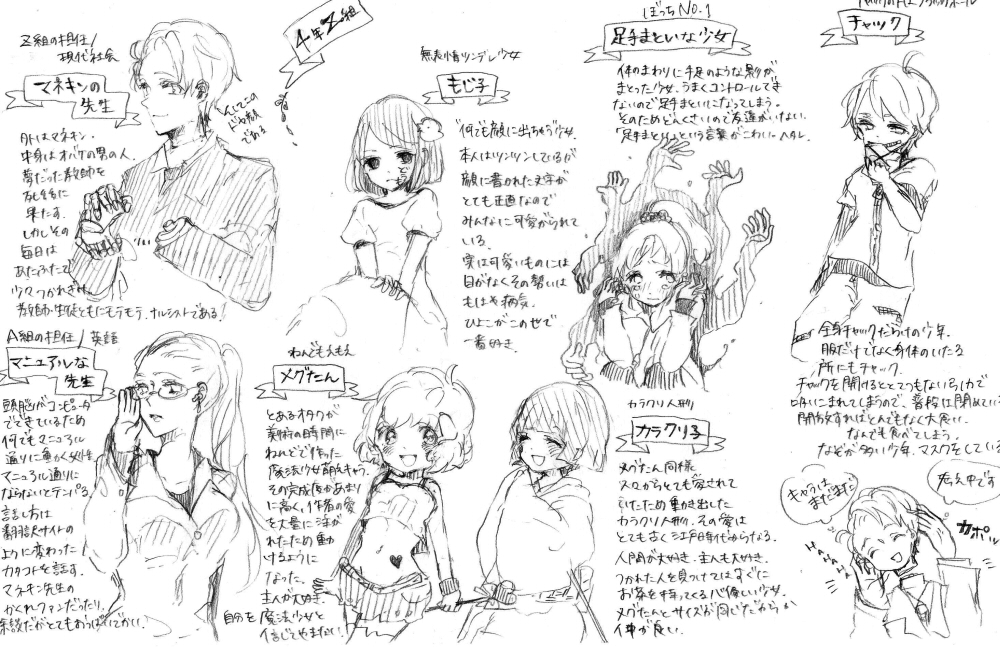 Z組の担任/
現代社会
マネキンの
先生
外はマネキン.
中身はオバケの男の人.
夢だった教師を
死後に
果たす.
しかしその
毎日は
あたふたで
少々つかれぎみ
教師・生徒ともにモテモテ.ナルシストである!
そしてこの
ドヤ顔
である
4年Z組
無表情ツンデレ少女
もじ子
何でも顔に出ちゃう少女.
本人はツンツンしているが
顔に書かれた文字が
とても正直なので
みんなに可愛がられて
いる.
実は可愛いものには
目がなくその勢いは
もはや病気.
ひよこがこの世で
一番好き.
ぼっちNO.1
足手まといな少女
体のまわりに手足のような影が
まとった少女.うまくコントロールでき
ないので足手まといになってしまう.
そのためどんくさいので友達がいない.
「足手まとい」という言葉がこわい.ヘタレ.
チャック
全身チャックだらけの少年.
服だけでなく身体のいたる
所にもチャック.
チャックを開けるととてつもない引力で
吸いこまれてしまうので、普段は閉めている
開放すればとんでもなく大食い.
なんでも食べてしまう.
なぞが多い少年.マスクをしている
A組の担任/英語
マニュアルな
先生
頭脳がコンピュータ
でできているため
何でもマニュアル
通りに動く女性
マニュアル通りに
ならないとテンパる.
話し方は
翻訳サイトの
ように変わった
カタコトを話す.
マネキン先生の
かくれファンだったり.
余談だがとてもおっぱいでかい.
ねんどもえもえ
メグたん
とあるオタクが
美術の時間に
ねんどで作った
魔法少女萌えキャラ.
その完成度があまり
に高く、作者の愛
を大量に注が
れたため動
けるように
なった.
主人が大好き.
自分を魔法少女と
信じてやまない.
カラクリ人形
カラクリ子
メグたん同様
とても愛されて
いたため動き出した
カラクリ人形.その愛は
とても古く江戸時代からなる.
人間が大好き.主人も大好き.
つかれた人を見つけてはすぐに
お茶を持ってくる心優しい少女.
メグたんとサイズが同じだからか
仲が良い.
キャラは
まだまだ
考え中です
HAHAHA
カポッ